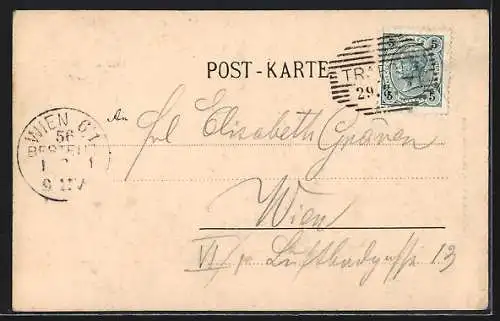 POST-KARTE
5 5
TRA
29.
5 5
WIEN 6/1
56
BESTELLT
9 V
An
Frl Elisabeth
Wien
VI/ Luftbadgasse 13